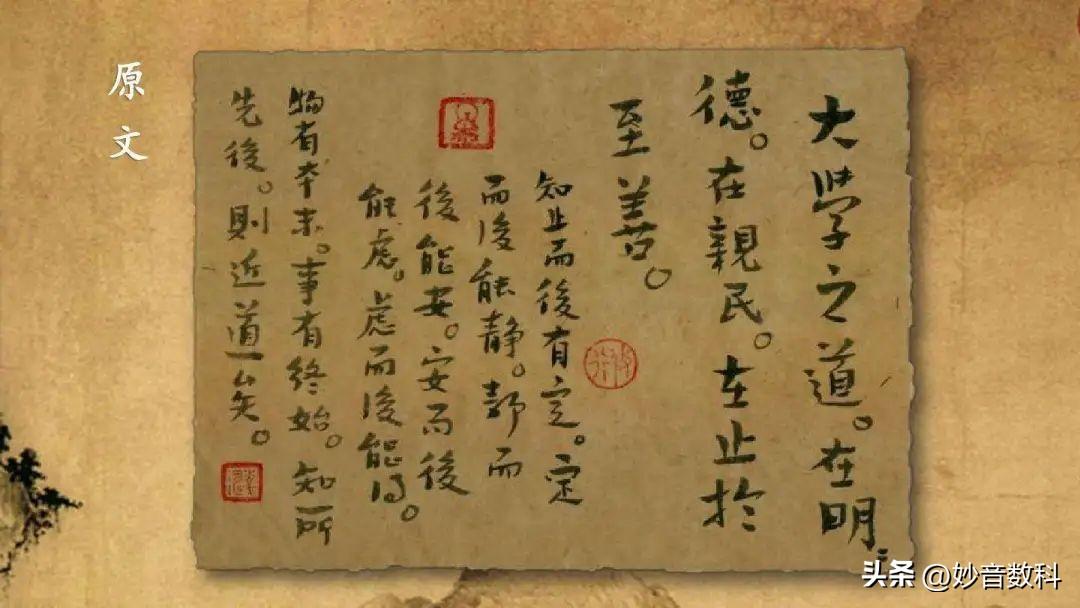 大學之道。在明〻
德。在親民。在止於
至善。
知止而後有定。定
而後能静。静而
後能安。安而後
能虑。虑而後能得。
物有本末。事有終始。知所
先後。則近道矣。
原文
头条 @妙音数科